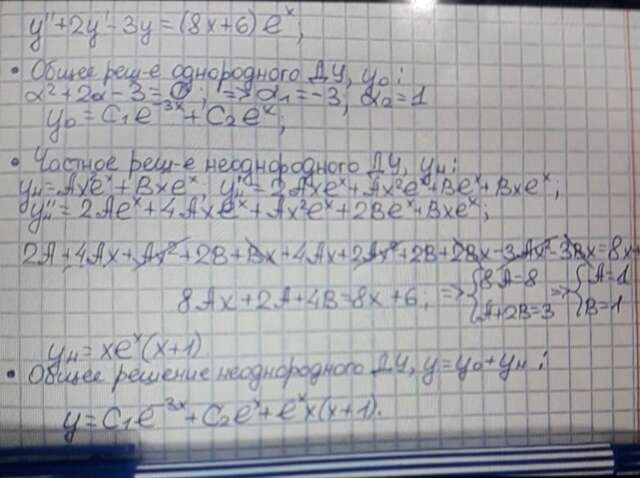 y''+2y'-3y=(8x+6)eˣ;
• Общее реш-е однородного ДУ, y₀:
α²+2α-3=0; => α₁=-3, α₂=1
y₀=C₁e⁻³ˣ+C₂eˣ;
• Частное реш-е неоднородного ДУ, yн:
yн=Ax²eˣ+Bxeˣ; yн'=2Axeˣ+Ax²eˣ+Beˣ+Bxeˣ;
yн''=2Aeˣ+4Axeˣ+Ax²eˣ+2Beˣ+Bxeˣ;
2A+4Ax+Ax²+2B+Bx+4Ax+2Ax²+2B+2Bx-3Ax²-3Bx=8x+
8Ax+2A+4B=8x+6; => {8A=8 => {A=1
A+2B=3 B=1
yн=xeˣ(x+1)
• Общее решение неоднородного ДУ, y=y₀+yн:
y=C₁e⁻³ˣ+C₂eˣ+eˣx(x+1).